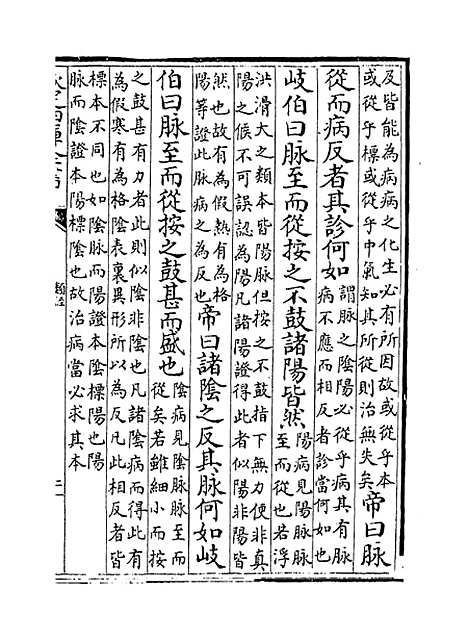 及皆能為病病之化生必有所因故或從乎本
或從乎標或從乎中氣知其所從則治無失矣
帝曰脈
從而病反者其診何如
謂脈之陰陽必從乎病其有脈
病不應而相反者診當何如也
岐伯曰脈至而從按之不鼓諸陽皆然
陽病見陽脈脈
至而從也若浮
洪滑大之類本皆陽脈但按之不鼓指下無力便非真
陽之候不可誤認為陽凡諸陽證得此者似陽非陽皆
然也故有為假熱有為格
陽等證此脈病之為反也
帝曰諸陰之反其脈何如岐
伯曰脈至而從按之鼓甚而盛也
陰病見陰脈脈至而
從矣若雖細小而按
之鼓甚有力者此則似陰非陰也凡諸陰病而得此有
為假寒有為格陰表裏異形所以為反凡此相反者皆
標本不同也如陰脈而陽證本陰標陽也陽
脈而陰證本陽標陰也故治病當必求其本
類經